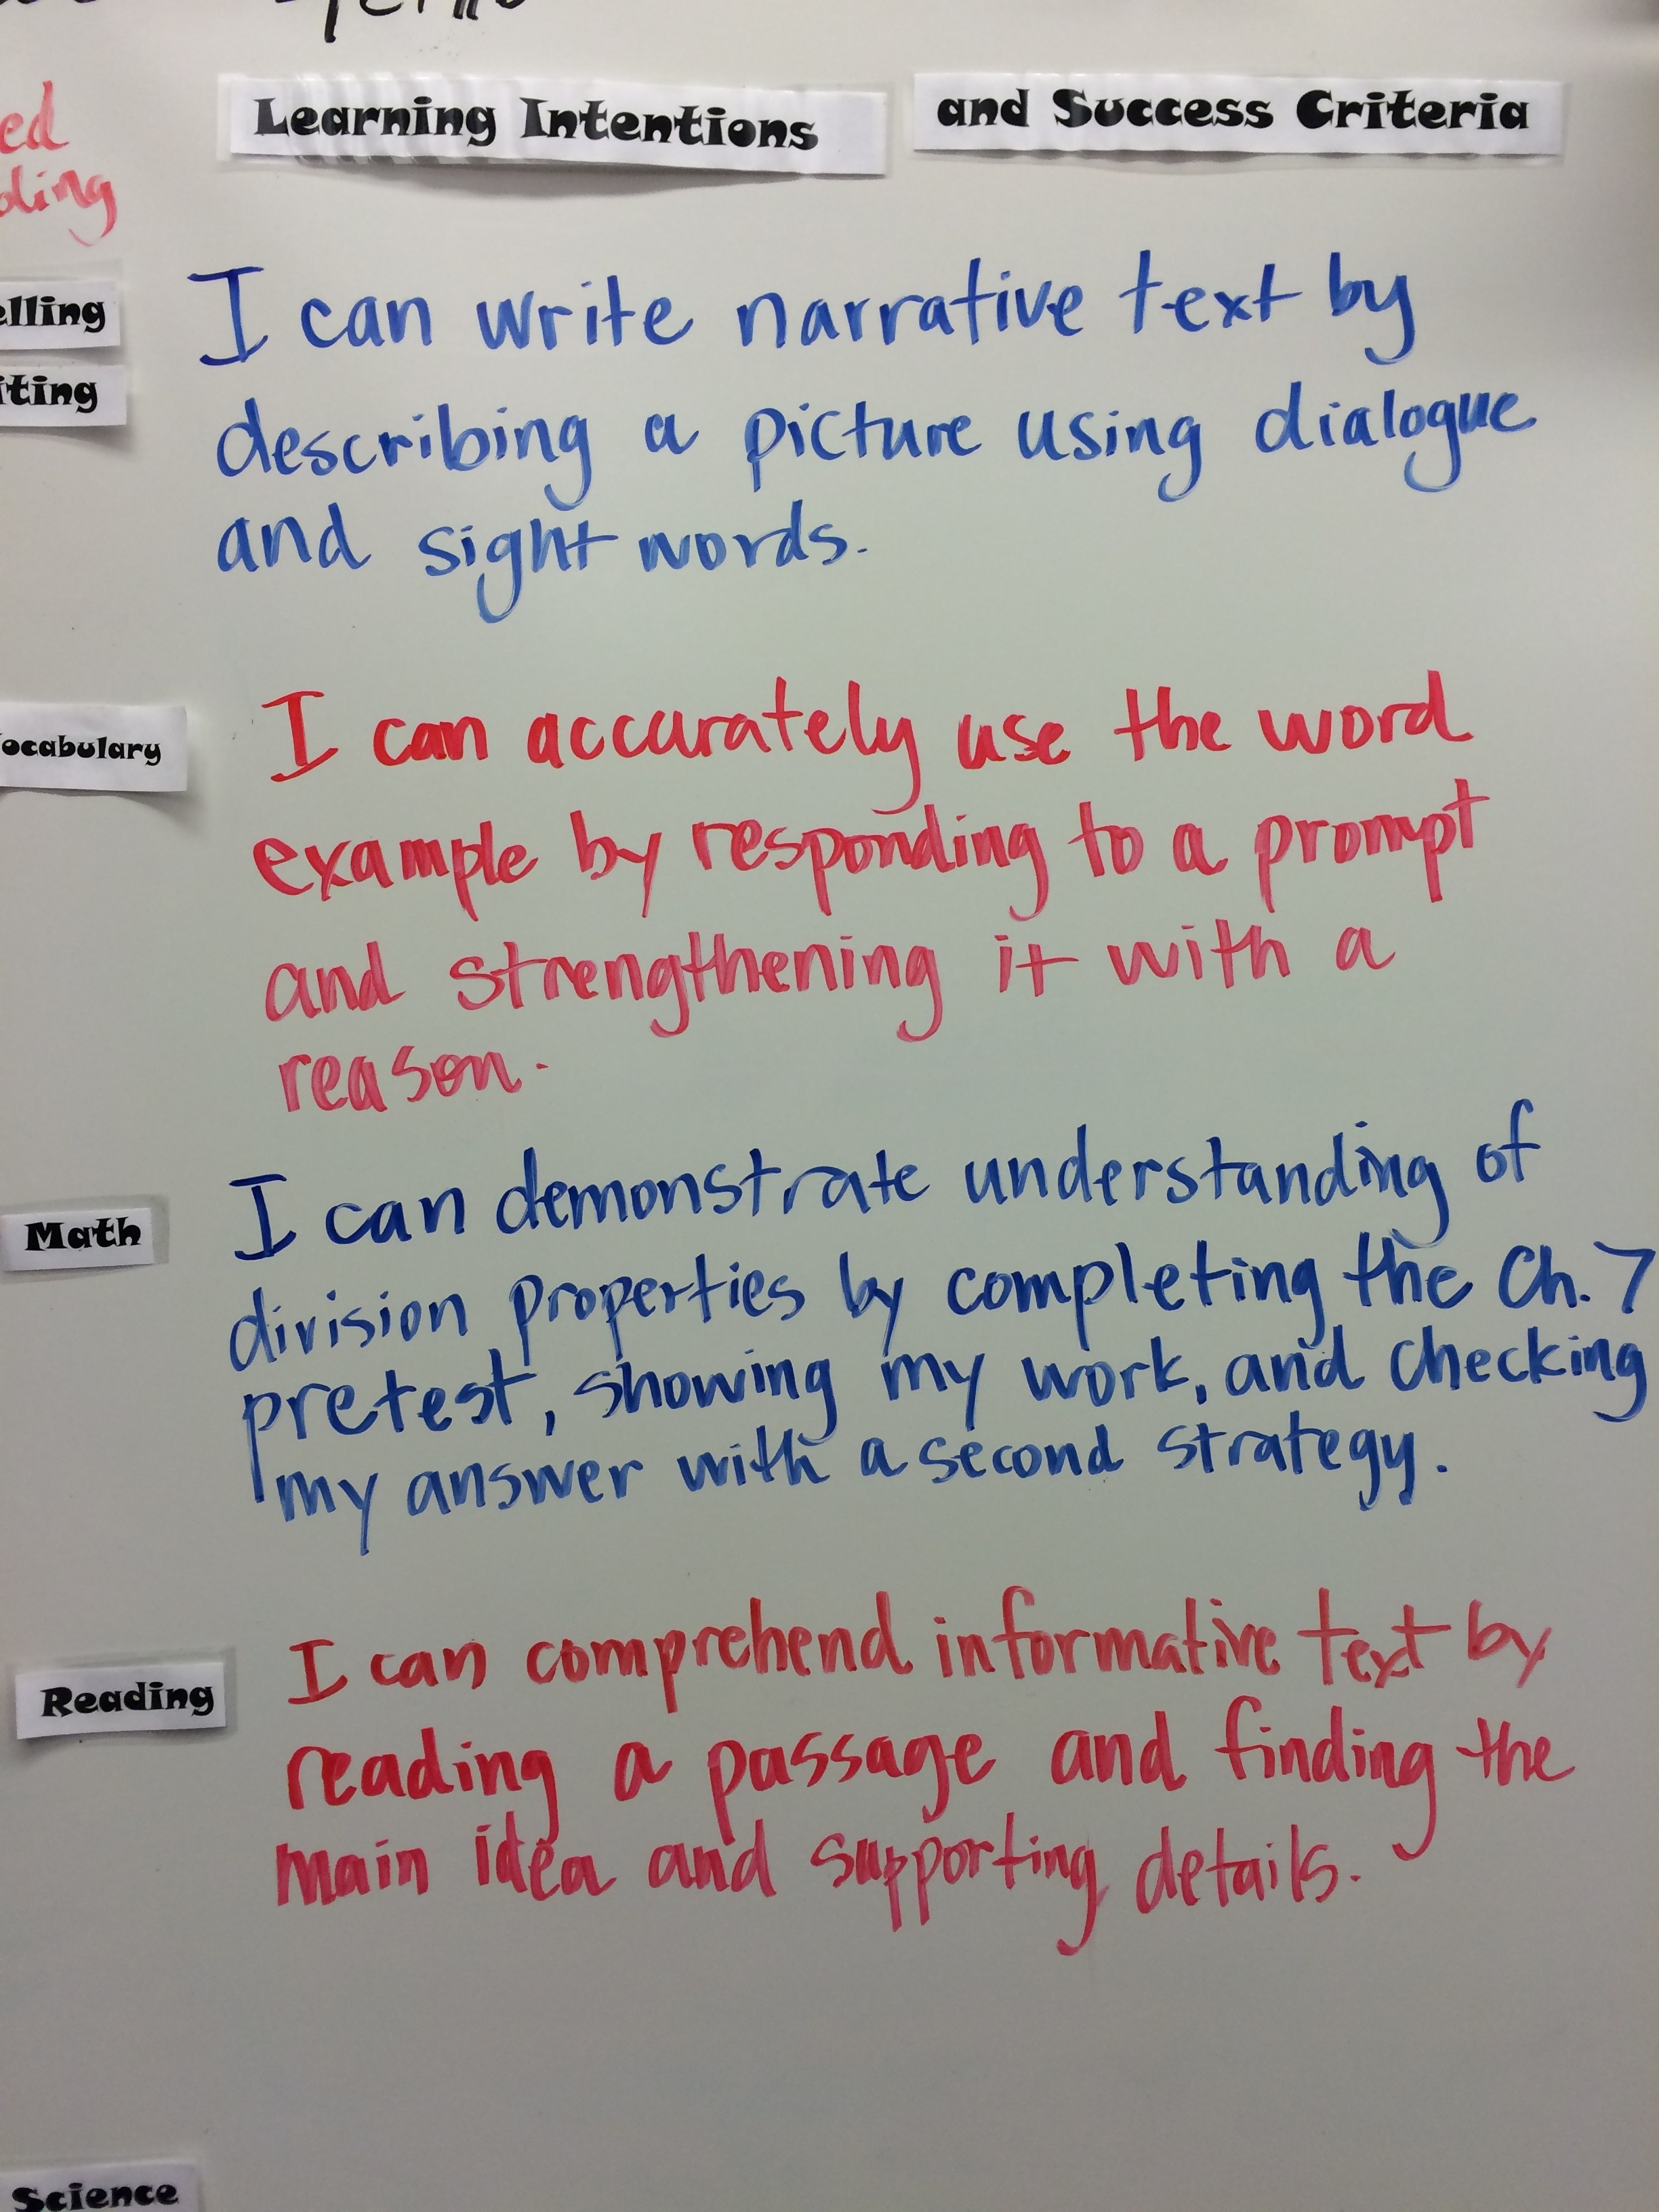 Learning Intentions and Success Criteria
ed
ding
elling
iting
I can write narrative text by
describing a picture using dialogue
and sight words.
ocabulary
I can accurately use the word
example by responding to a prompt
and strengthening it with a
reason.
Math
I can demonstrate understanding of
division properties by completing the Ch. 7
pretest, showing my work, and checking
my answer with a second strategy.
Reading
I can comprehend informative text by
reading a passage and finding the
main idea and supporting details.
Science